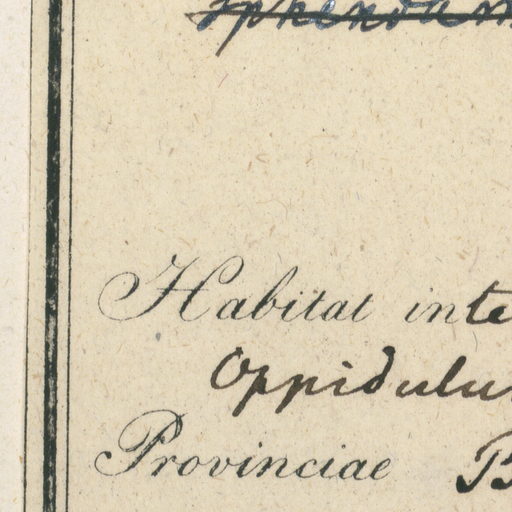 Habitat inte
Oppidulu
Provinciae B